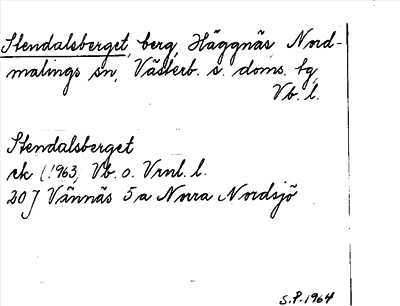 Stendalsberget, berg, Häggnäs, Nord-
malings sn, Västerb. s. doms. tg,
Vb. l.
Stendalsberget
ek (1963) Vb. o. Vrnl. l.
20J Vännäs 5a Norra Nordsjö
S.P. 1964